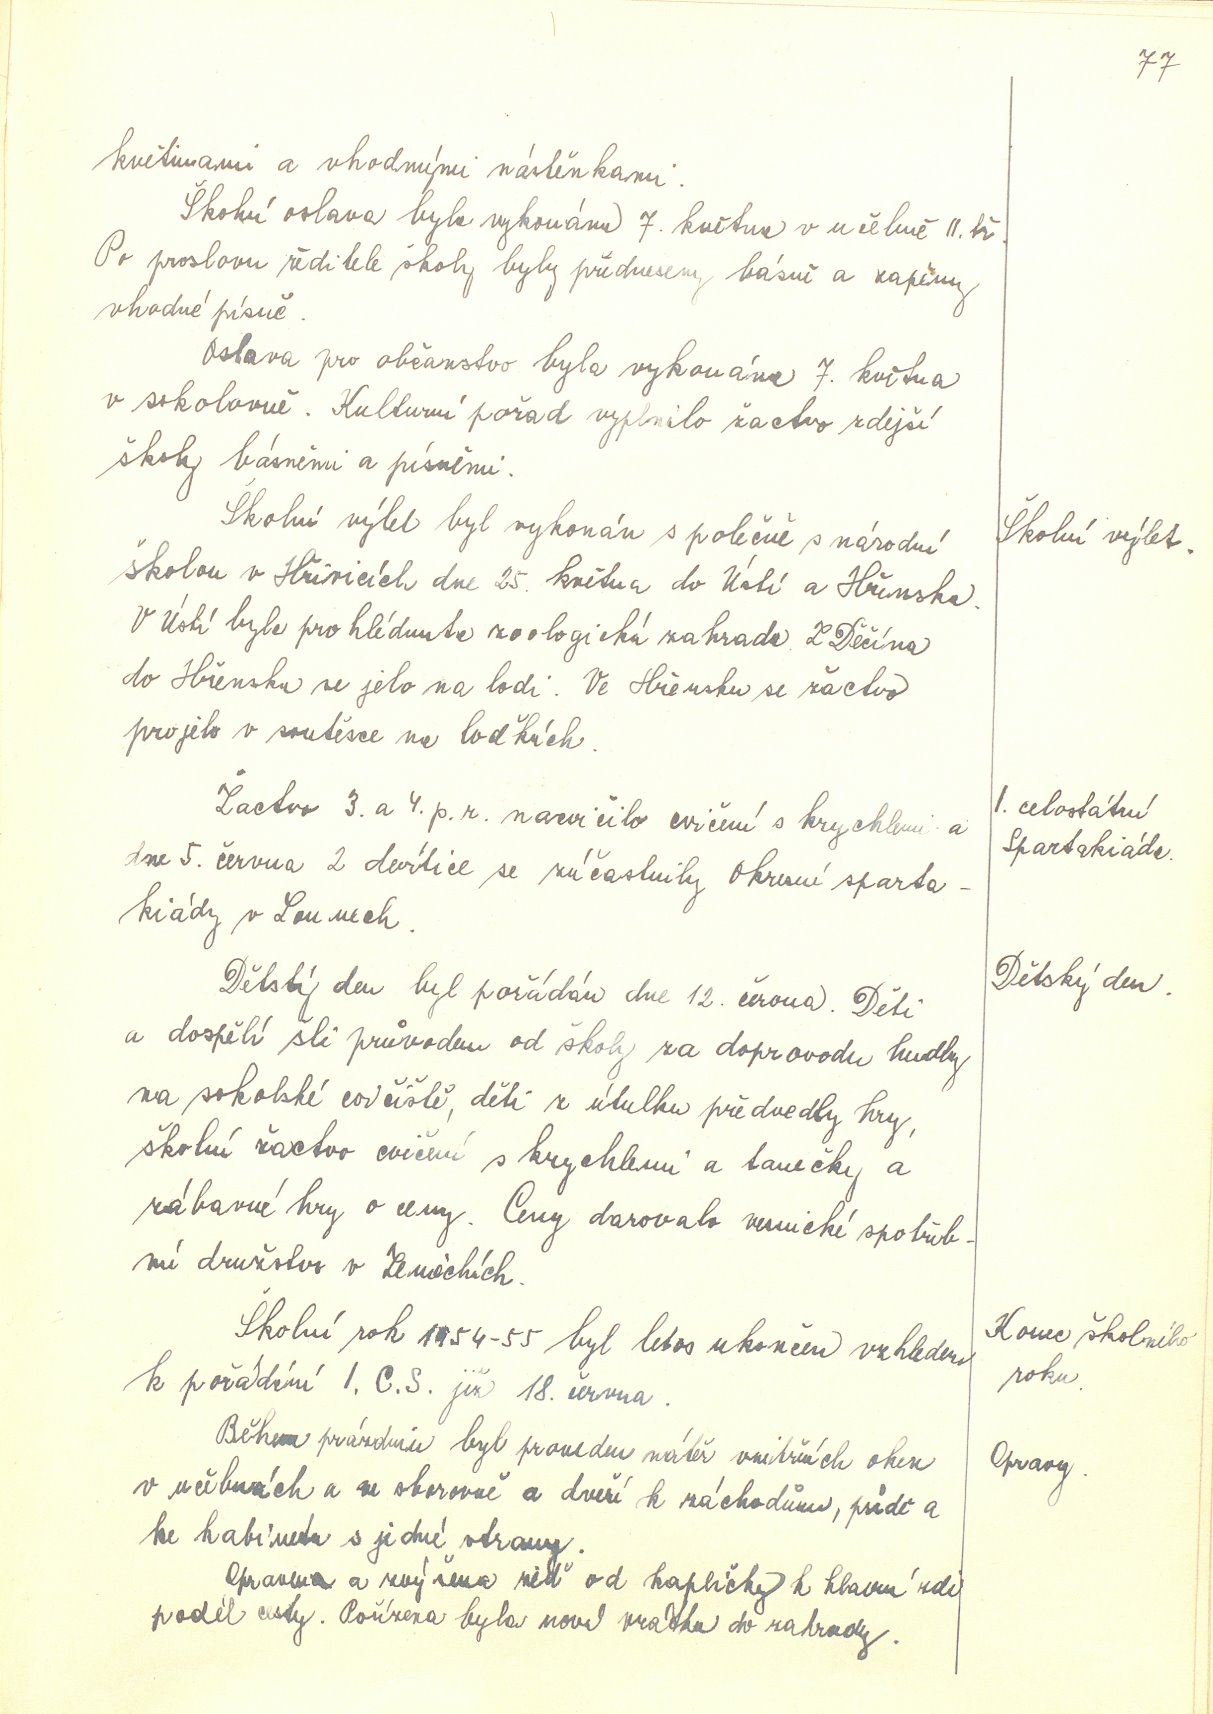 77
květinami a vhodnými nástěnkami.
Školní oslava byla vykonána 7. května v učebně II. tř.
Po proslovu ředitele školy byly předneseny básně a zapěny
vhodné písně.
Oslava pro občanstvo byla vykonána 7. května
v sokolovně. Kulturní pořad vyplnilo žactvo zdejší
školy básněmi a písněmi.
Školní výlet byl vykonán společně s národní
Školní výlet.
školou v Hřivicích dne 25. května do Ústí a Hřenska.
V Ústí byla prohlédnuta zoologická zahrada. Z Děčína
do Hřenska se jelo na lodi. Ve Hřensku se žactvo
projelo v soutěsce na loďkách.
Žactvo 3. a 4. p. r. nacvičilo cvičení s krychlemi a
1. celostátní
Spartakiáda.
dne 5. června 2 devítice se zúčastnily okresní sparta-
kiády v Lounech.
Dětský den byl pořádán dne 12. června. Děti
Dětský den.
a dospělí šli průvodem od školy za doprovodu hudby
na sokolské cvičiště, děti z útulku předvedly hry,
školní žactvo cvičení s krychlemi a tanečky a
zábavné hry o ceny. Ceny darovalo vesnické spotřeb-
ní družstvo v Zeměchích.
Školní rok 1954-55 byl letos ukončen vzhledem
Konec školního
roku.
k pořádání I. C. S. již 18. června.
Během prázdnin byl proveden nátěr vnitřních oken
Opravy.
v učebnách a ve sborovně a dveří k záchodům, půdě a
ke kabinetu s jedné strany.
Opravena a zvýšena zeď od kapličky k hlavní zdi
podél cesty. Pořízena byla nová vrátka do zahrady.